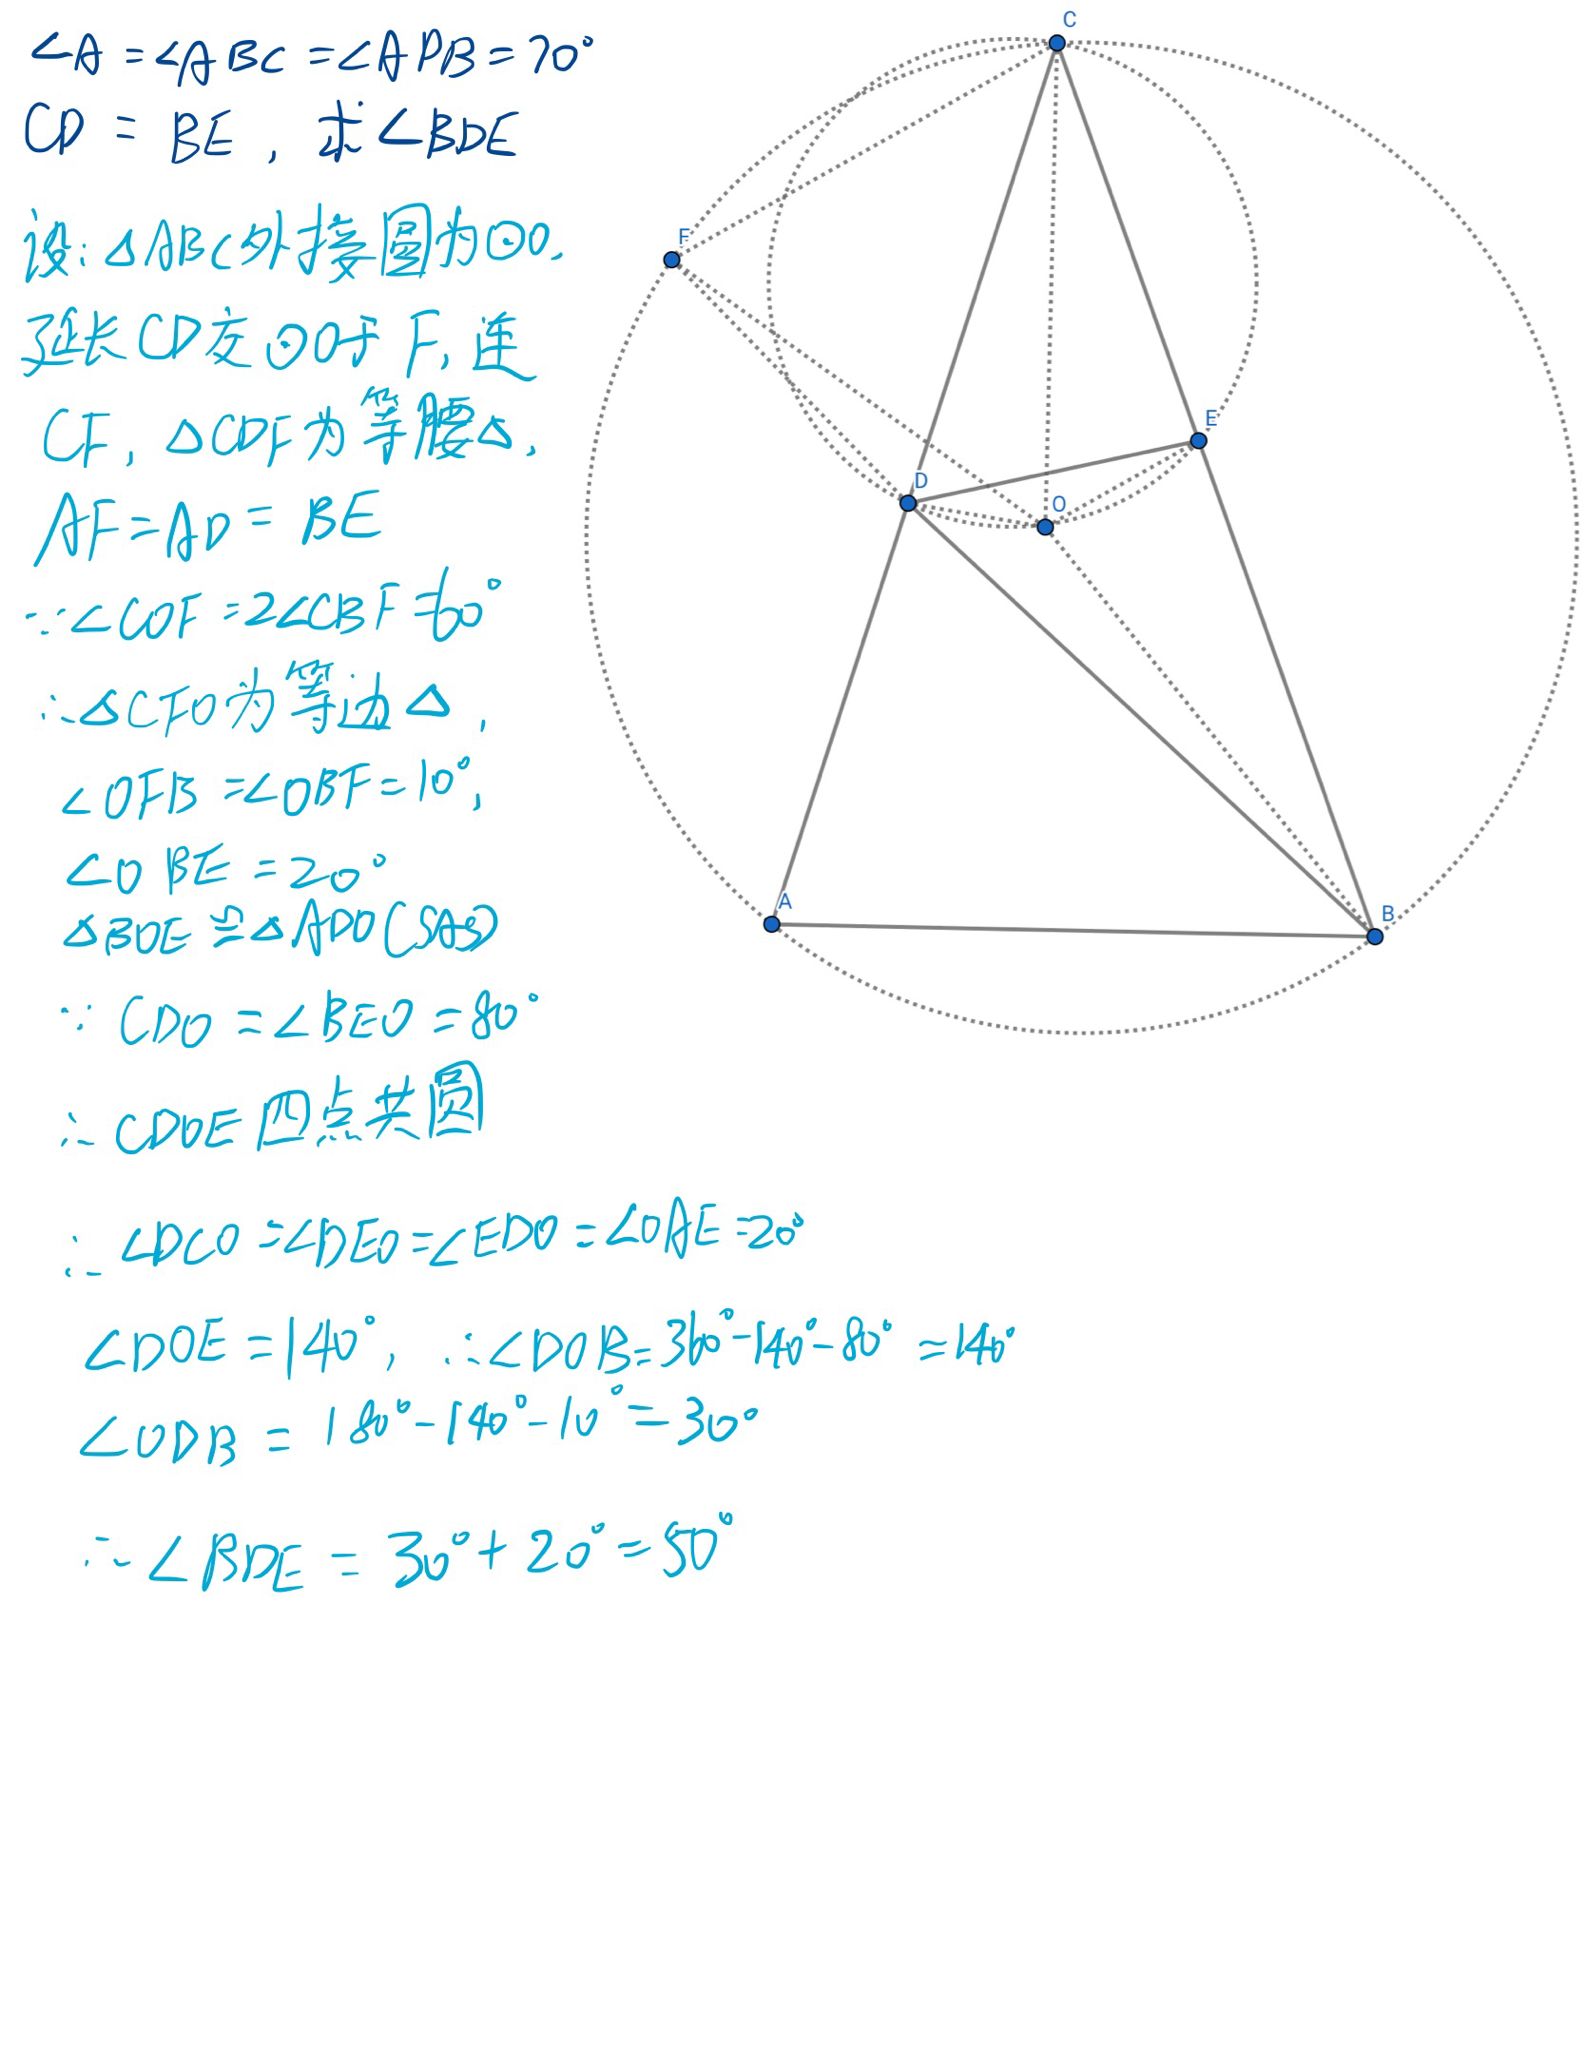 ∠A = ∠ABC = ∠ADB = 70°
CD = BE , 求∠BDE
设: △ABC外接圆为⊙O,
延长CD交⊙O于F, 连
CF, △CDF为等腰△,
AF = AD = BE
∵∠COF = 2∠CBF = 60°
∴△CFO为等边△,
∠OFB = ∠OBF = 10°,
∠OBE = 20°
△BOE ≌ △ADO (SAS)
∵ CDO = ∠BEO = 80°
∴ CDOE四点共圆
∴ ∠DCO = ∠DEO = ∠EDO = ∠OAE = 20°
∠DOE = 140°, ∴∠DOB = 360° - 140° - 80° = 140°
∠ODB = 180° - 140° - 10° = 30°
∴ ∠BDE = 30° + 20° = 50°
C
F
E
D
O
A
B